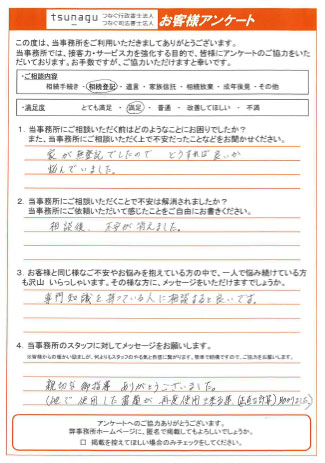 tsunagu つなぐ行政書士法人
つなぐ司法書士法人
お客様アンケート
この度は、当事務所をご利用いただきましてありがとうございます。
当事務所では、接客力・サービス力を強化する目的で、皆様にアンケートのご協力をいた
だいております。お手数ですが、ご協力いただけますと幸いです。
・ご相談内容
相続手続き ・ 相続登記 ・ 遺言 ・ 家族信託 ・ 相続放棄 ・ 成年後見 ・ その他
・満足度
とても満足 ・ 満足 ・ 普通 ・ 改善してほしい ・ 不満
1. 当事務所にご相談いただく前はどのようなことにお困りでしたか?
また、当事務所にご相談いただく上で不安だったことなどをお聞かせください。
家が無登記でしたので どうすれば良いか
悩んでいました。
2. 当事務所にご相談いただくことで不安は解消されましたか?
当事務所にご依頼いただいて感じたことをご自由にお書きください。
相談後、不安が消えました。
3. お客様と同じ様なご不安やお悩みを抱えている方の中で、一人で悩み続けている方
も沢山 いらっしゃいます。その様な方に、メッセージをいただけますでしょうか。
専門知識を持っている人に相談すると良いです。
4. 当事務所のスタッフに対してメッセージをお願いします。
※皆様からの温かい励ましが、何よりもスタッフのやる気と作意に繋がります。簡単で結構ですので、ご協力をお願いします。
親切な御指導 ありがとうございました。
(他で使用した書類が再度使用出来る事
助かりました)
アンケートへのご協力ありがとうございます。
弊事務所ホームページに、匿名で掲載してもよろしいでしょうか。
□ 掲載を控えてほしい場合のみチェックをしてください。